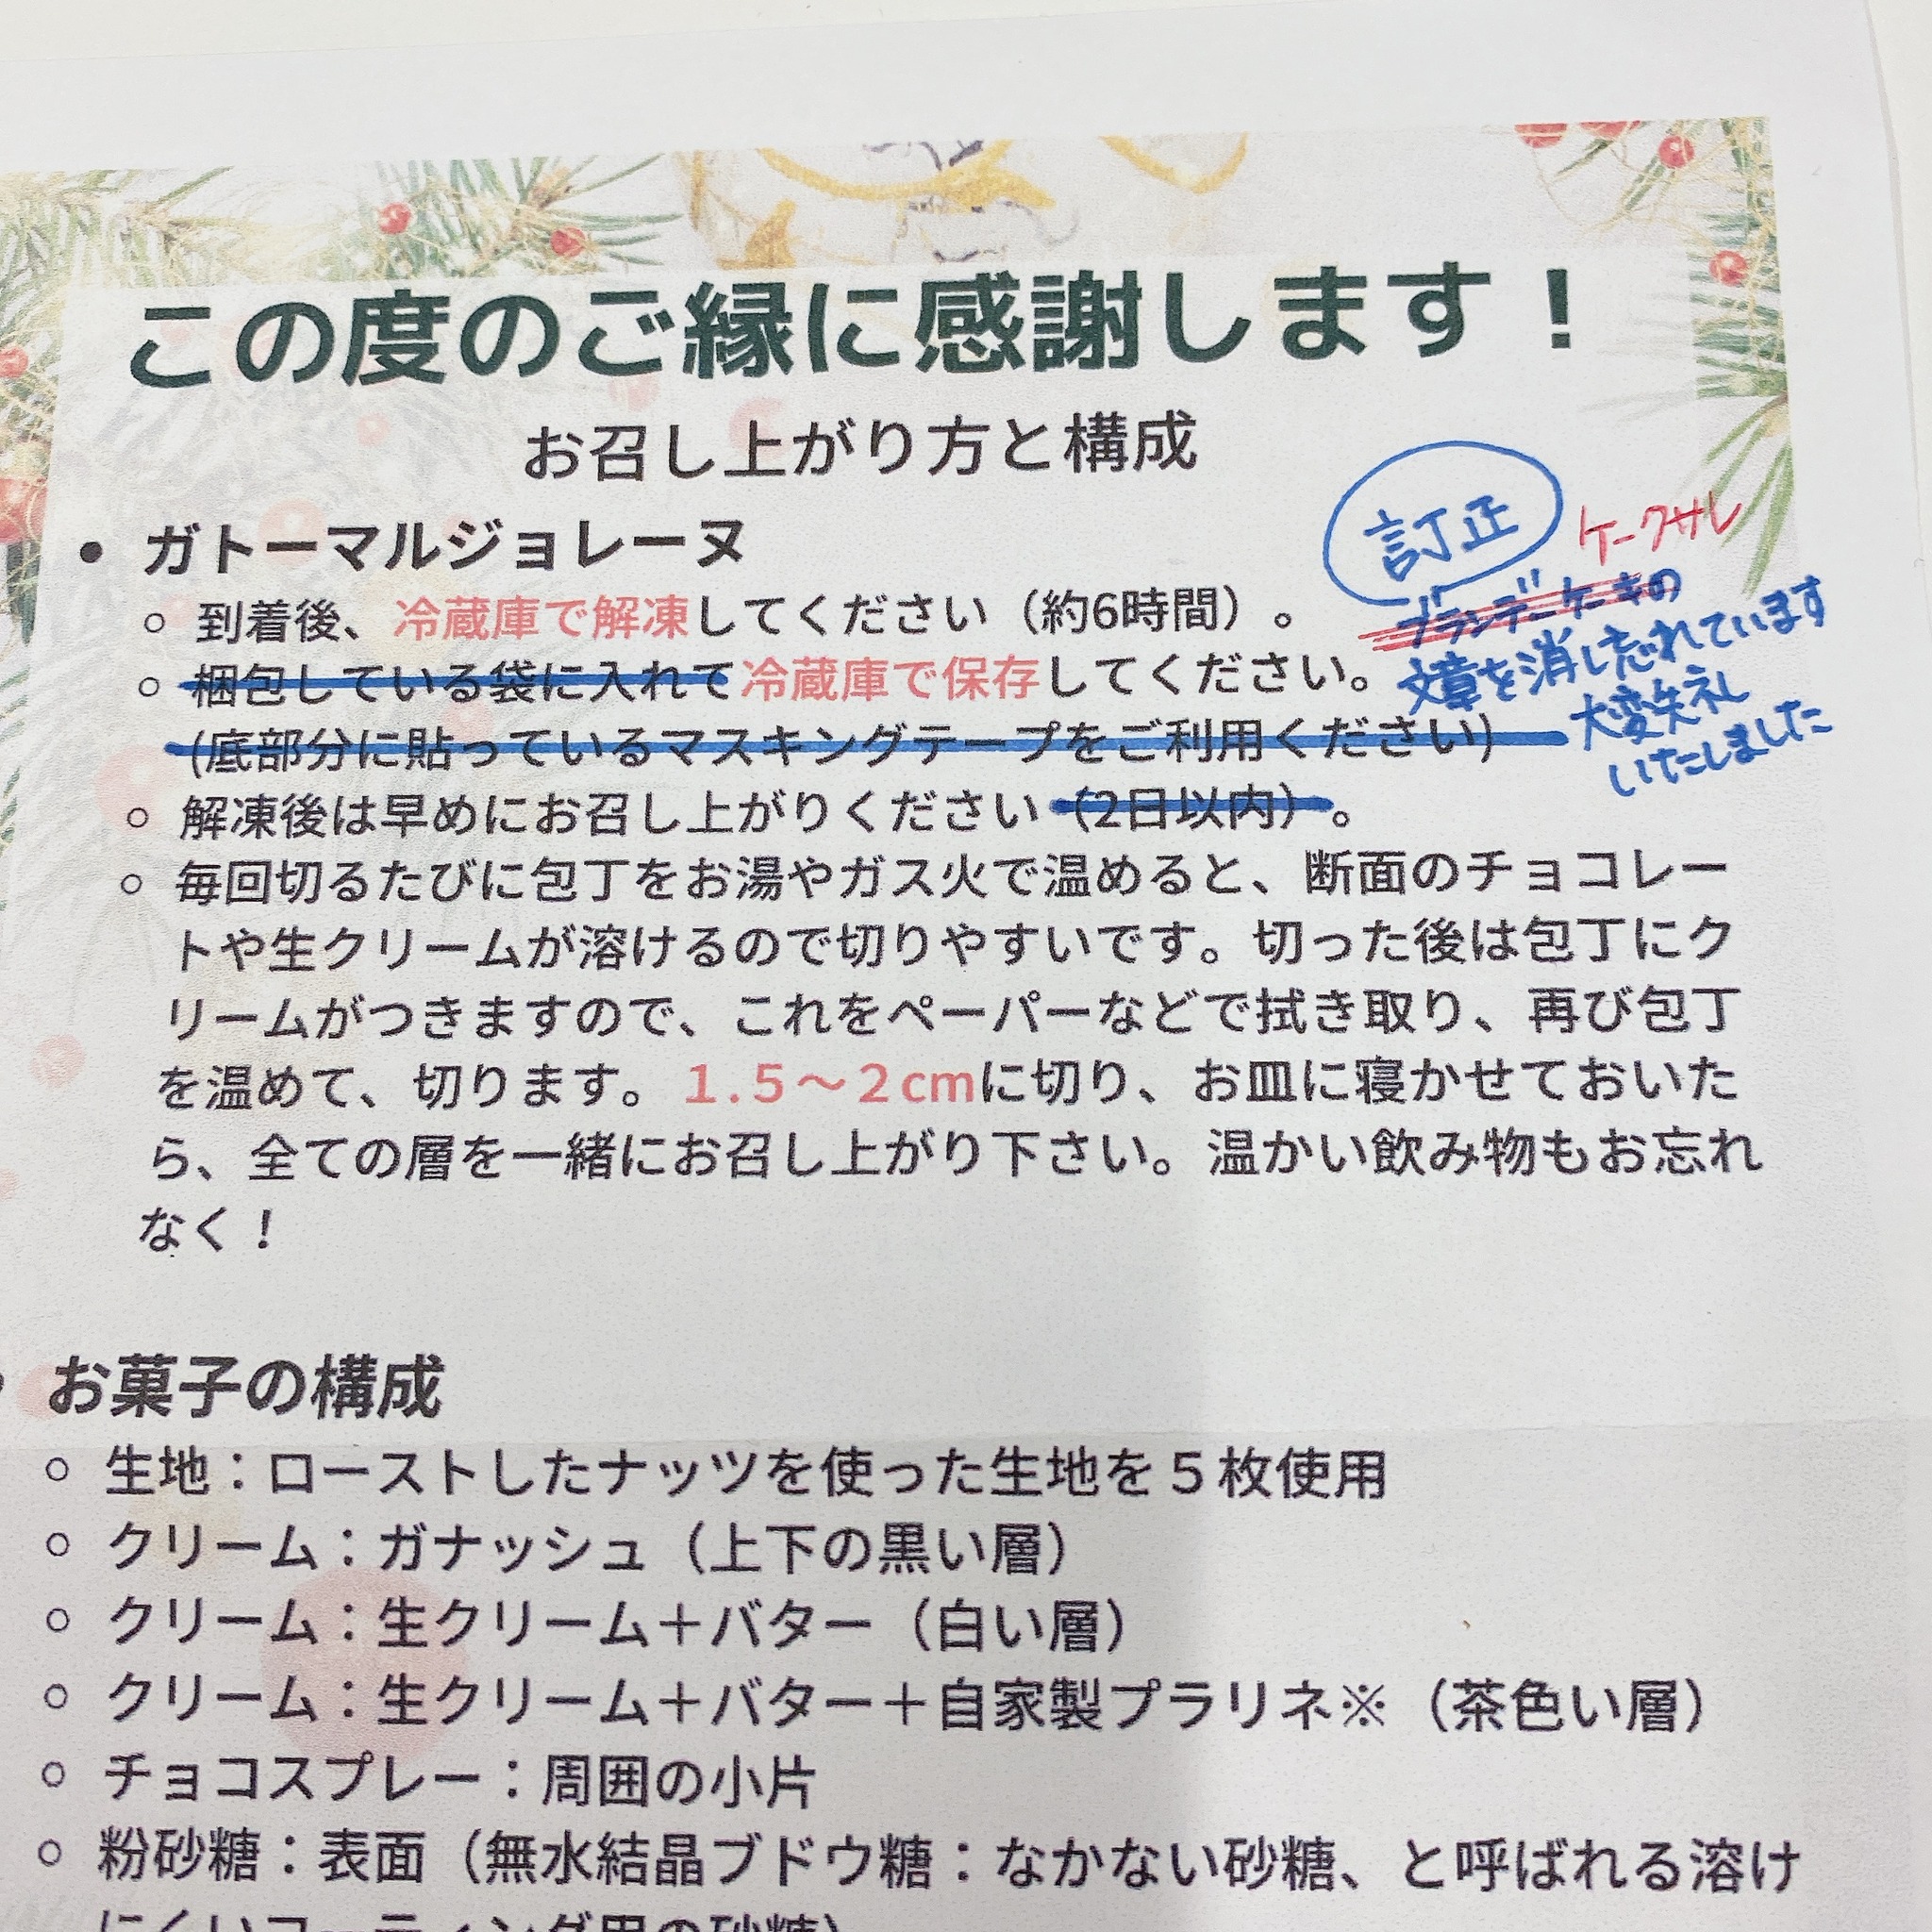 この度のご縁に感謝します！
お召し上がり方と構成
訂正
ケークサレ
ブランデーケーキの
文章を消し忘れています
大変失礼
いたしました
• ガトーマルジョレーヌ
○ 到着後、冷蔵庫で解凍してください（約6時間）。
○ 梱包している袋に入れて冷蔵庫で保存してください。
(底部分に貼っているマスキングテープをご利用ください)
○ 解凍後は早めにお召し上がりください（2日以内）。
○ 毎回切るたびに包丁をお湯やガス火で温めると、断面のチョコレー
トや生クリームが溶けるので切りやすいです。切った後は包丁にク
リームがつきますので、これをペーパーなどで拭き取り、再び包丁
を温めて、切ります。１.５～２cmに切り、お皿に寝かせておいた
ら、全ての層を一緒にお召し上がり下さい。温かい飲み物もお忘れ
なく！
• お菓子の構成
○ 生地：ローストしたナッツを使った生地を５枚使用
○ クリーム：ガナッシュ（上下の黒い層）
○ クリーム：生クリーム＋バター（白い層）
○ クリーム：生クリーム＋バター＋自家製プラリネ※（茶色い層）
○ チョコスプレー：周囲の小片
○ 粉砂糖：表面（無水結晶ブドウ糖：なかない砂糖、と呼ばれる溶け
にくいコーティング用の砂糖）